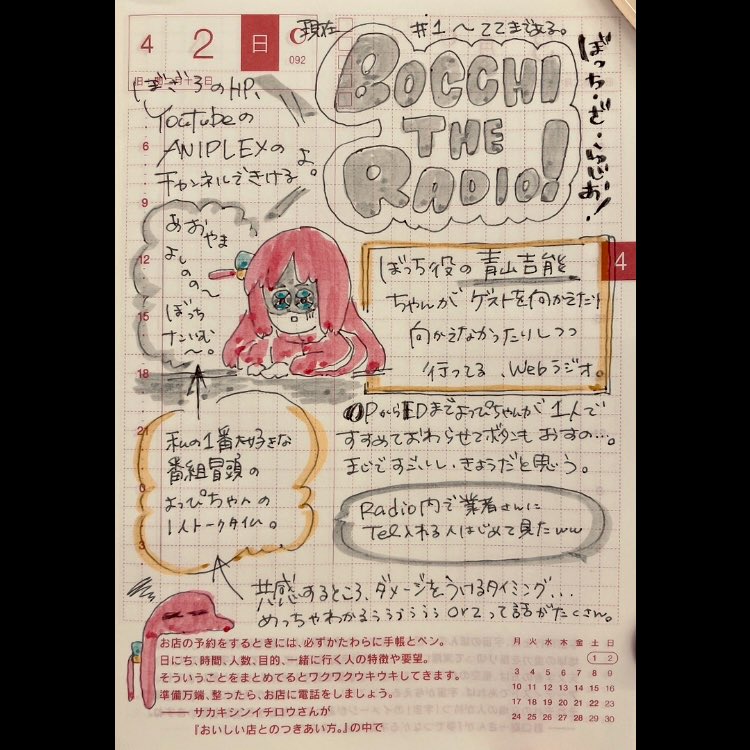 4 2 日
092
現在 #1〜ててきゐる。
ぼざろのHP、
Youtubeの
ANIPLEXの
チャンネルできけるよ。
BOCCHI
THE
RADIO!
ぼっち・ざ・らじお!
あおやま
よしのの〜
ぼっち
ナいむ
〜。
ぼっち役の青山吉能
ちゃんが ゲストを向かえたり
向かえなかったりしつつ
行ってる、Webラジオ。
4
OPからEDまでよっぴちゃんが1人で
すすめておわらせてボタンもおすの…。
まじですごいし、きょうだと思う。
私の1番大好きな
番組冒頭の
よっぴちゃんの
1人トークタイム。
Radio内で業者さんに
Tel入れる人はじめて見たww
共感するところ、ダメージをうけるタイミング...
めっちゃわかるぅぅぅぅぅぅorzって話がたくさん。
6
9
12
15
18
21
0
3
お店の予約をするときには、必ずかたわらに手帳とペン。
日にち、時間、人数、目的、一緒に行く人の特徴や要望。
そういうことをまとめてるとワクワクウキウキしてきます。
準備万端、整ったら、お店に電話をしましょう。
──サカキシンイチロウさんが
『おいしい店とのつきあい方。』の中で
月 火 水 木 金 土 日
1 2
3 4 5 6 7 8 9
10 11 12 13 14 15 16
17 18 19 20 21 22 23
24 25 26 27 28 29 30